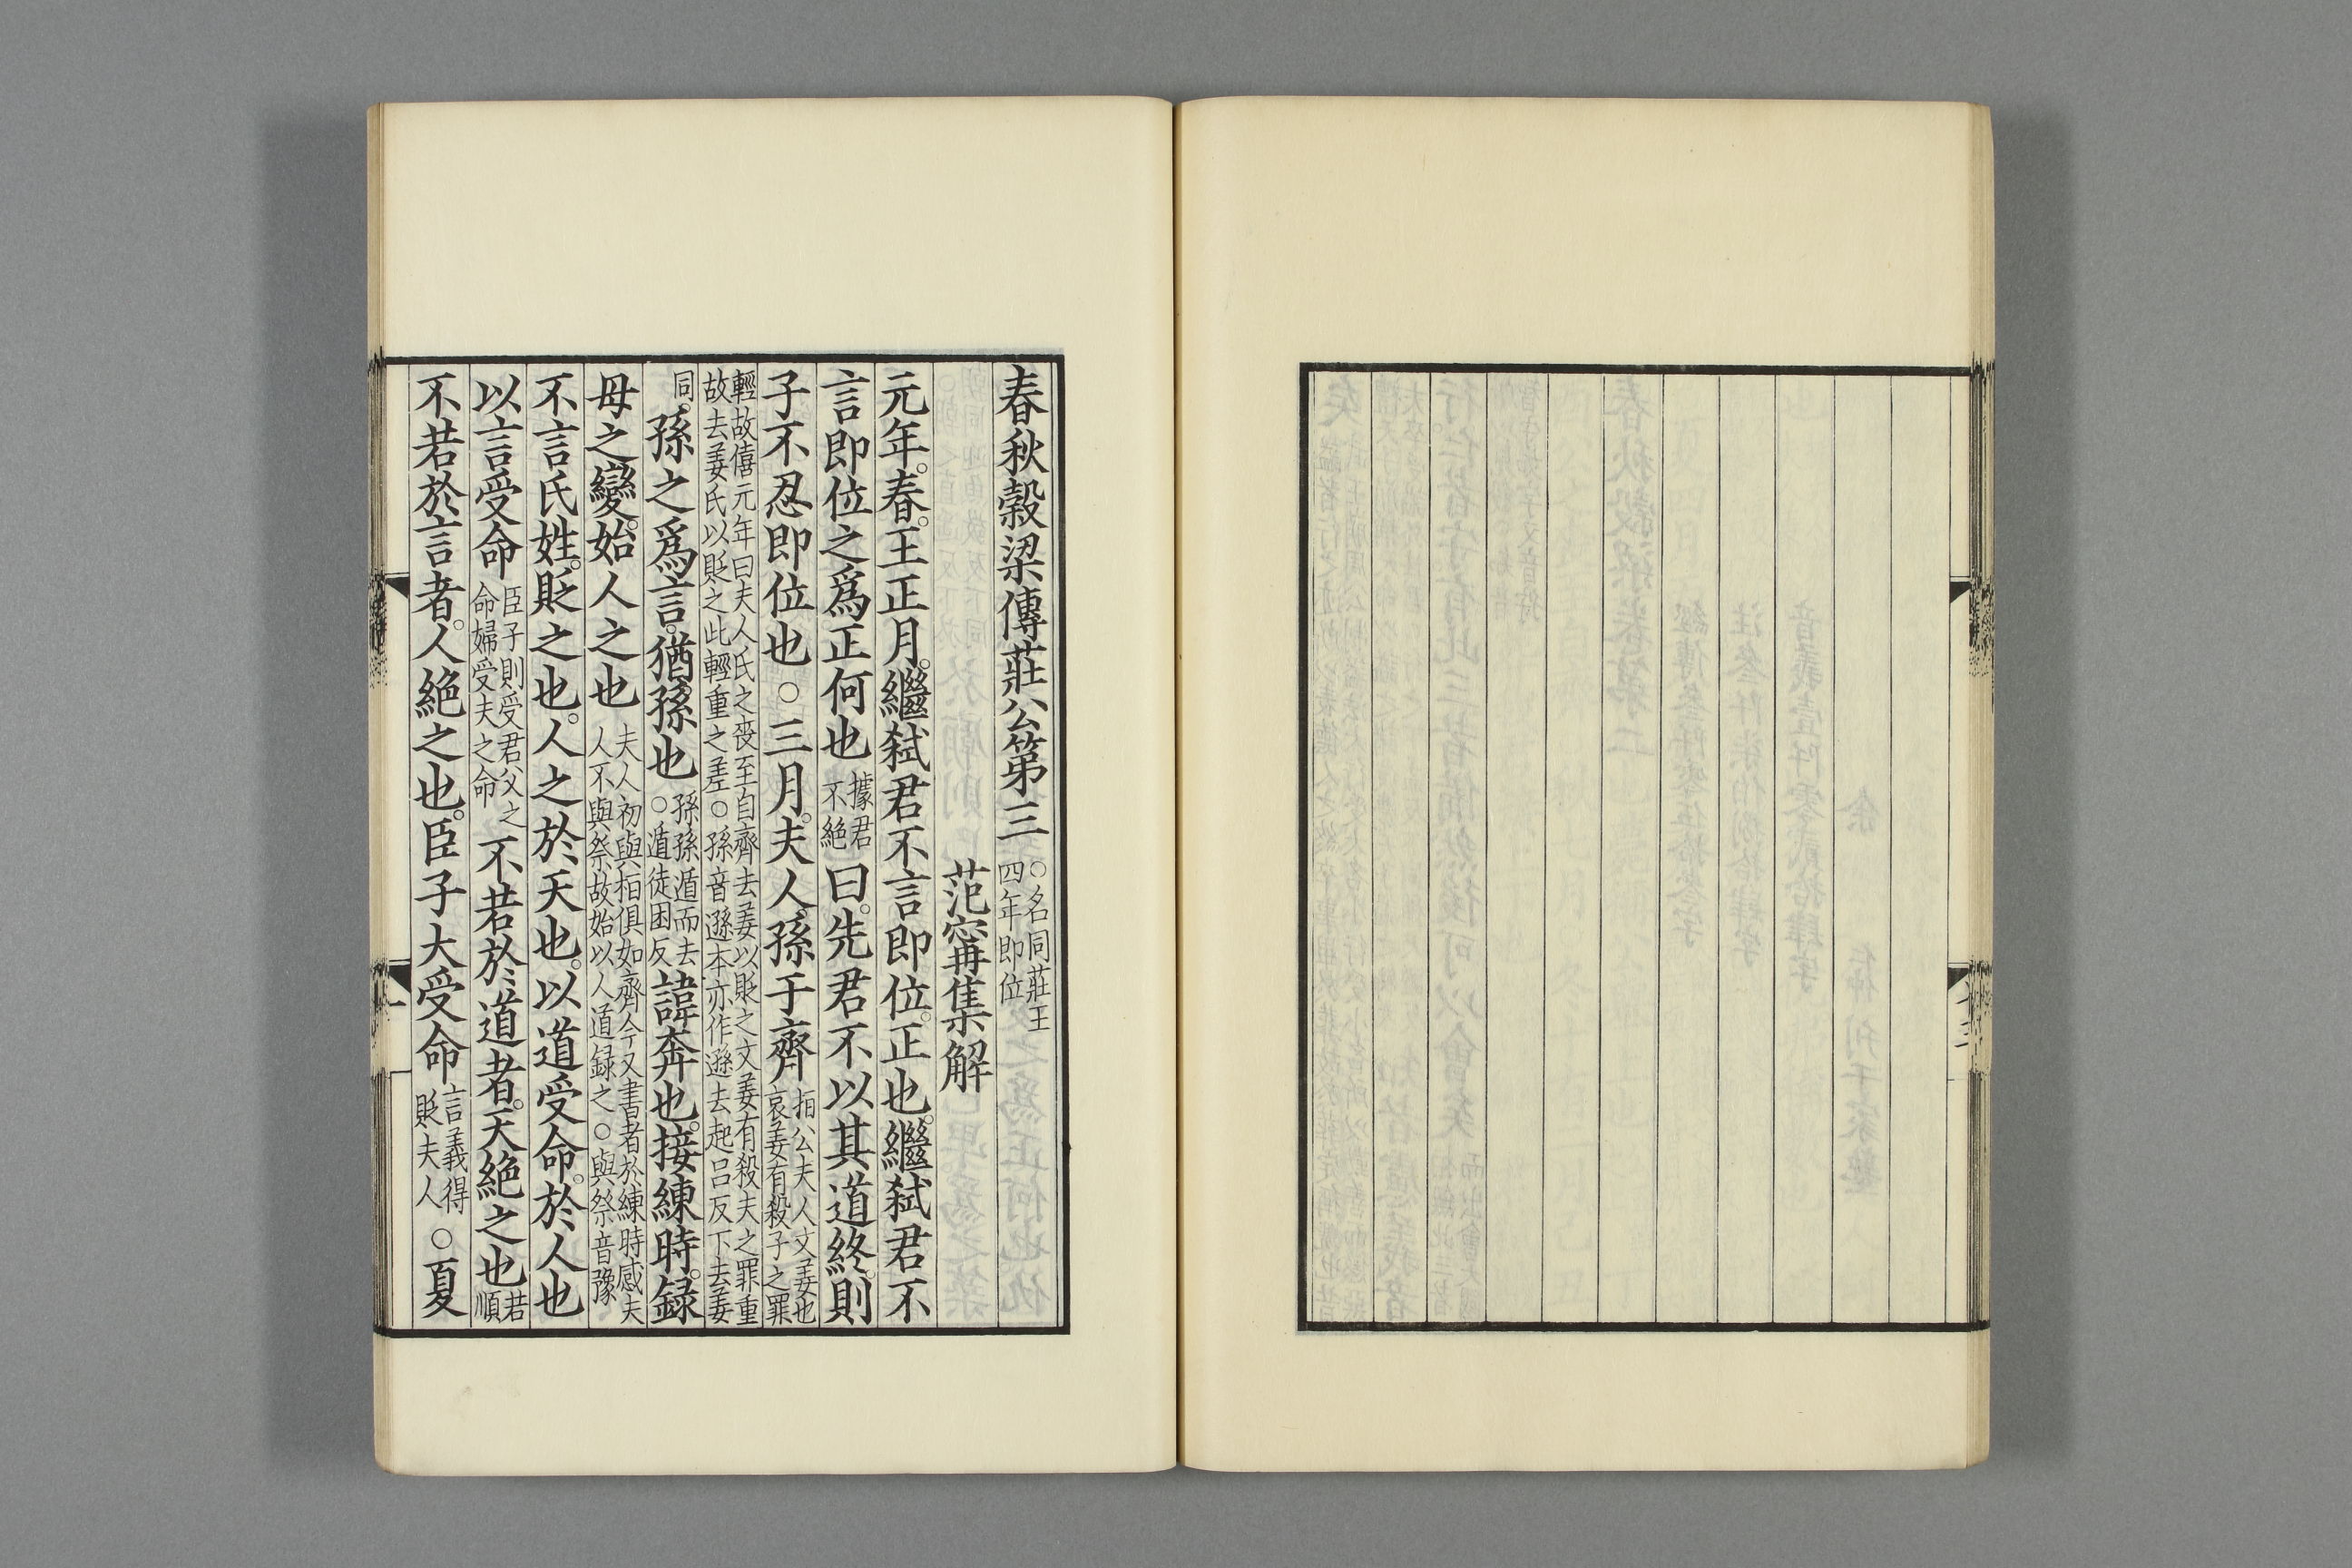 春秋穀梁傳莊公第三○名同莊王四年即位
范甯集解
元年。春。王正月。繼弒君不言即位。正也。繼弒君不
言即位之爲正何也據君不絕曰。先君不以其道終。則
子不忍即位也○三月。夫人孫于齊桓公夫人文姜也哀姜有殺子之罪
輕故僖元年曰夫人氏之喪至自齊去姜以貶之文姜有殺夫之罪重故去姜氏以貶之此輕重之差○孫音遜本亦作遜去起呂反下去姜
同。孫之爲言。猶孫也孫孫遁而去○遁徒困反諱奔也。接練時。録
母之變。始人之也夫人初與桓俱如齊今又書者於練時感夫人不與祭故始以人道録之○與祭音豫
不言氏姓。貶之也。人之於天也。以道受命。於人也
以言受命臣子則受君父之命婦受夫之命不若於道者。天絕之也若順
不若於言者。人絕之也。臣子大受命言義得貶夫人○夏